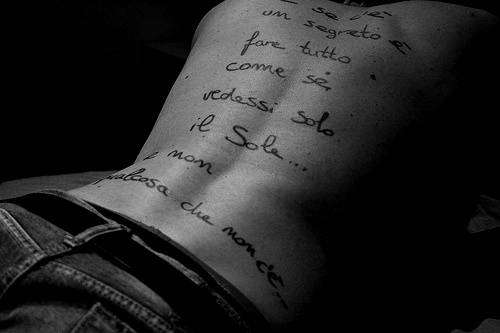 un segreto è
fare tutto
come sé,
vedessi solo
il Sole...
e non
qualcosa che non c'è...